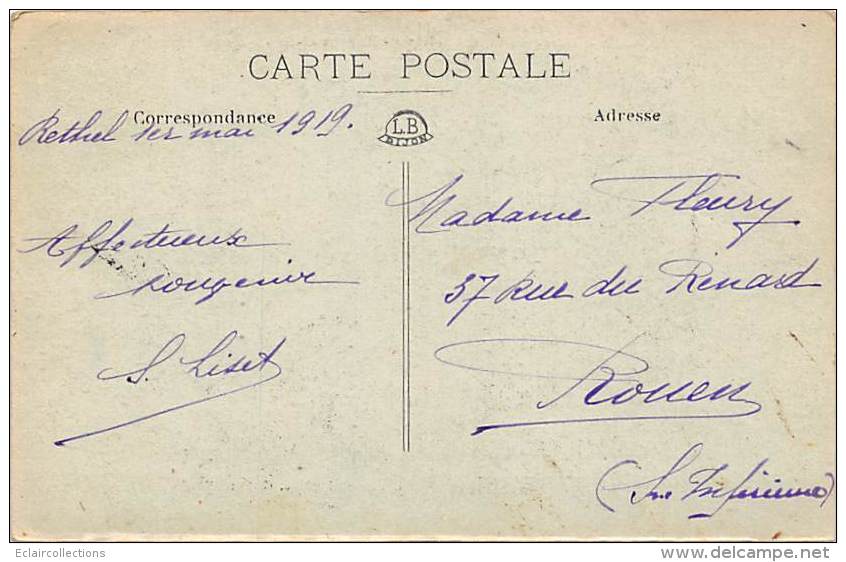 CARTE POSTALE
Correspondance
Adresse
L.B
DIJON
Rethel 1er mai 1919.
Affectueux
souvenir
S. Liset
Madame Fleury
37 Rue du Renard
Rouen
(Sne Inférieure)
Eclaircollections
http://www.delcampe.net